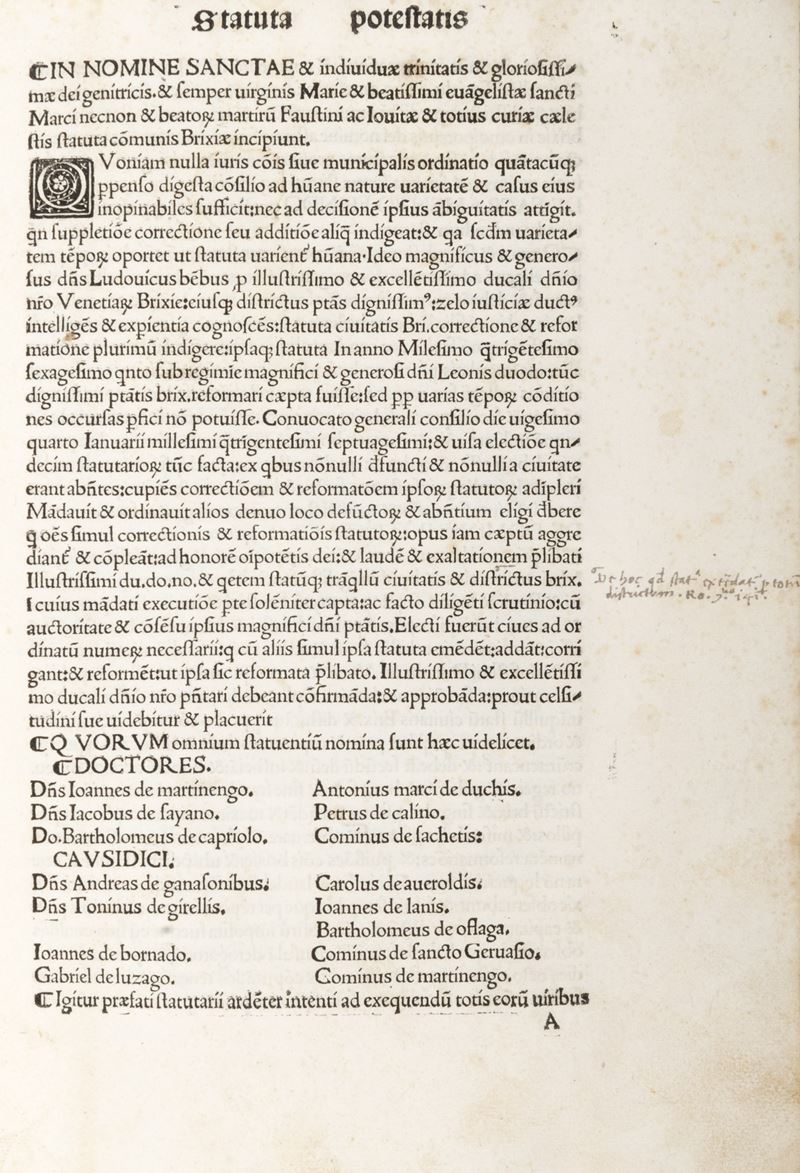 Statuta potestatis
¶IN NOMINE SANCTAE & indiuiduæ trinitatis & gloriosissi-
mæ dei genitricis.& semper uirginis Marie & beatissimi euãgelistæ sancti
Marci necnon & beatoꝝ martirũ Faustini ac Iouitæ & totius curiæ cæle
stis statuta cõmunis Brixiæ incipiunt.
QVoniam nulla iuris cõis siue municipalis ordinatio quãtacũqꝫ
ppenso digesta cõsilio ad hũane nature uarietatẽ & casus eius
inopinabiles sufficit:nec ad decisionẽ ipsius ãbiguitatis attigit.
qn suppletiõe correctione seu additiõe aliq̃ indigeat:& qa scd̃m uarieta-
tem tẽpoꝝ oportet ut statuta uarient hũana.Ideo magnificus & genero-
sus dñs Ludouicus bẽbus ꝓ illustrissimo & excellẽtissimo ducali dñio
nr̃o Venetiaꝝ Brixie:eiusqꝫ districtus ptãs dignissimꝰ:zelo iusticiæ ductꝰ
intelligẽs & expientia cognoscẽs:statuta ciuitatis Bri.correctione & refor
matione plurimũ indigere:ipsaqꝫ statuta In anno Milesimo q̃trigẽtesimo
sexagesimo qnto sub regimĩe magnifici & generosi dñi Leonis duodo:tũc
dignissimi ptãtis brix.reformari cæpta fuisse:sed pp uarias tẽpoꝝ cõditio
nes occursas pfici nõ potuisse.Conuocato generali consilio die uigesimo
quarto Ianuarii millesimi q̃trigentesimi septuagesimi:& uisa electiõe qn-
decim statutarioꝝ tũc facta:ex qbus nõnulli dfuncti & nõnulli a ciuitate
erant abñtes:cupiẽs correctiõem & reformatõem ipsoꝝ statutoꝝ adipleri
Mãdauit & ordinauit alios denuo loco defũctoꝝ & abñtium eligi dbere
q̃ oẽs simul correctionis & reformatiõis statutoꝝ:opus iam cæptũ aggre
diant & cõpleãt:ad honorẽ oĩpotẽtis dei:& laudẽ & exaltationem p̃libati
Illustrissimi du.do.no.& qetem statũqꝫ trãqllũ ciuitatis & districtus brix.
I cuius mãdati executiõe pte solẽniter capta:ac facto diligẽti scrutinio:cũ
auctoritate & cõsẽsu ipsius magnifici dñi ptãtis.Electi fuerũt ciues ad or
dinatũ numeꝝ necessarii:q cũ aliis simul ipsa statuta emẽdẽt:addãt:corri
gant:& reformẽt:ut ipsa sic reformata p̃libato.Illustrissimo & excellẽtissi
mo ducali dñio nr̃o pñtari debeant cõfirmãda:& approbãda:prout celsi-
tudini sue uidebitur & placuerit
¶Q VORVM omnium statuentiũ nomina sunt hæc uidelicet.
¶DOCTORES.
Dñs Ioannes de martinengo. Antonius marci de duchis.
Dñs Iacobus de fayano. Petrus de calino.
Do.Bartholomeus de capriolo. Cominus de sachetis:
CAVSIDICI.
Dñs Andreas de ganasonibus. Carolus de aueroldis.
Dñs Toninus de girellis. Ioannes de lanis.
Bartholomeus de oflaga.
Ioannes de bornado. Cominus de sancto Geruasio.
Gabriel de luzago. Cominus de martinengo.
¶Igitur præfati statutarii ardẽter intenti ad exequendũ totis eorũ uiribus
A